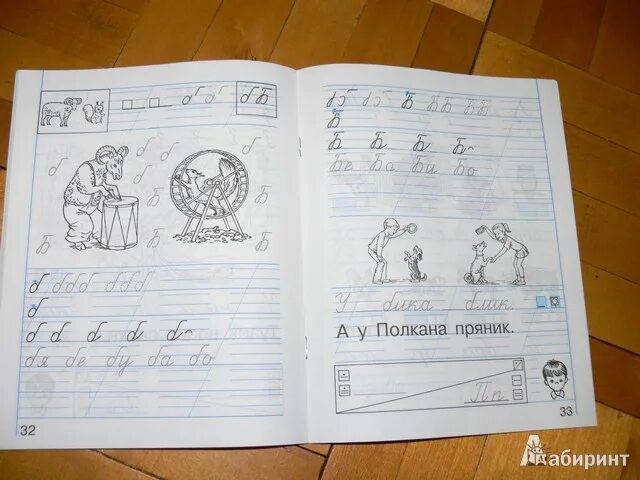 б б б Б
б б
б Б
Б Б Б
б б б б б б
б
б б б б б
бя бе бу ба бо
32
Б Б Б Б Б Б
Б
Б Б Б Б
Бе Ба Би Бо
У бика блик.
А у Полкана пряник.
Пп
33
Лабиринт